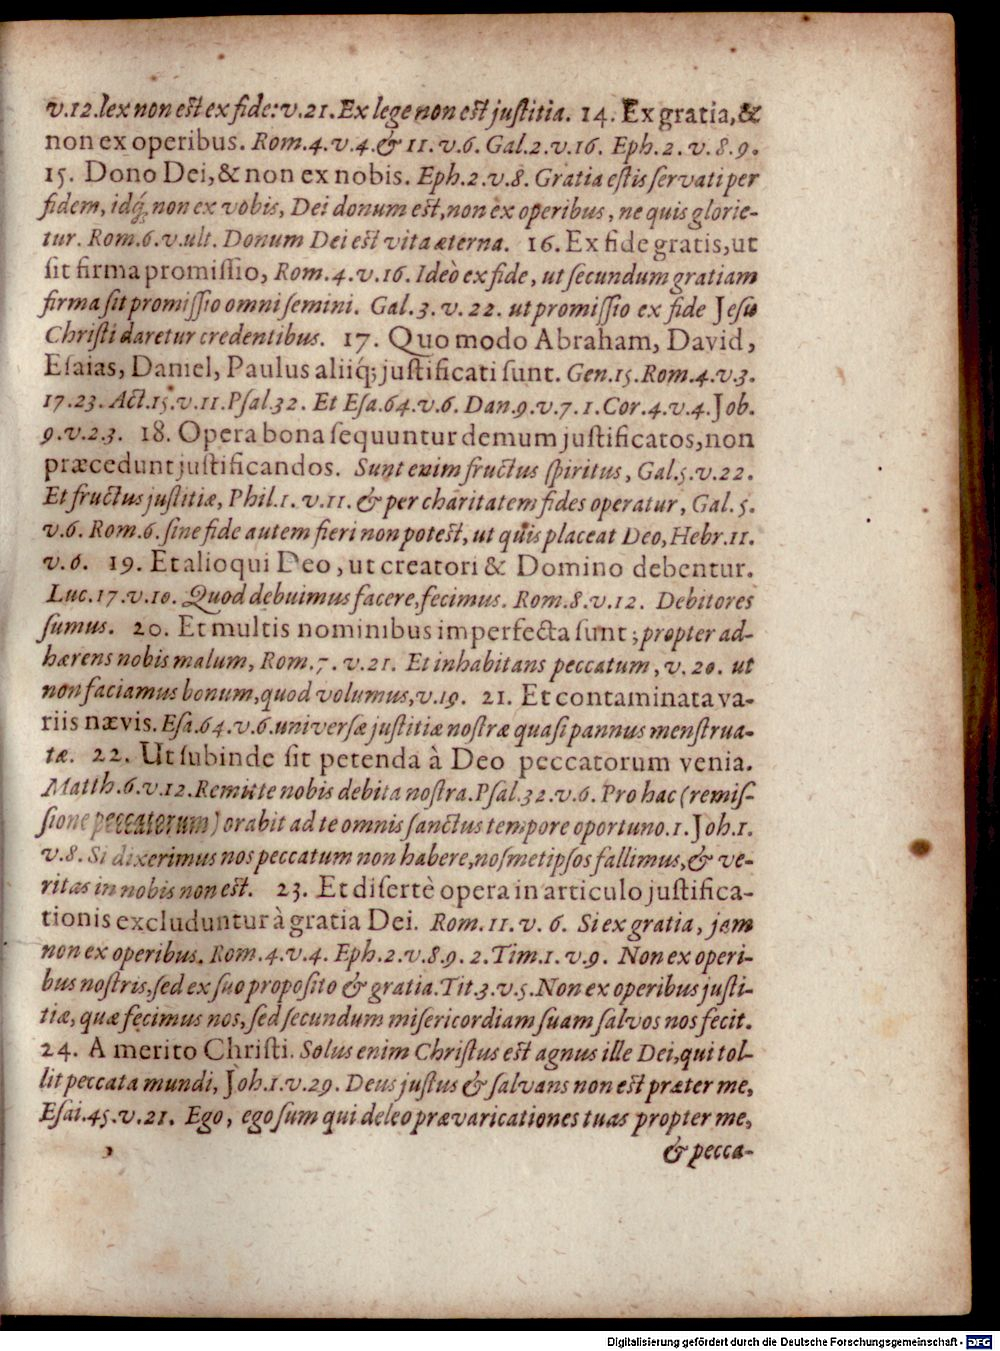 v.12.lex non est ex fide: v.21. Ex lege non est justitia. 14. Ex gratia, &
non ex operibus. Rom.4.v.4.& 11.v.6. Gal.2.v.16. Eph.2.v.8.9.
15. Dono Dei, & non ex nobis. Eph.2.v.8. Gratia estis servati per
fidem, idq́; non ex vobis, Dei donum est, non ex operibus, ne quis glorie-
tur. Rom.6.v.ult. Donum Dei est vita æterna. 16. Ex fide gratis, ut
sit firma promissio, Rom.4.v.16. Ideò ex fide, ut secundum gratiam
firma sit promissio omni semini. Gal.3.v.22. ut promissio ex fide Jesu
Christi daretur credentibus. 17. Quo modo Abraham, David,
Esaias, Daniel, Paulus aliiq́; justificati sunt. Gen.15. Rom.4.v.3.
17.23. Act.15.v.11. Psal.32. Et Esa.64.v.6. Dan.9.v.7.1.Cor.4.v.4. Job.
9.v.2.3. 18. Opera bona sequuntur demum justificatos, non
præcedunt justificandos. Sunt enim fructus spiritus, Gal.5.v.22.
Et fructus justitiæ, Phil.1.v.11. & per charitatem fides operatur, Gal.5.
v.6. Rom.6. sine fide autem fieri non potest, ut quis placeat Deo, Hebr.11.
v.6. 19. Et alioqui Deo, ut creatori & Domino debentur.
Luc.17.v.10. Quod debuimus facere, fecimus. Rom.8.v.12. Debitores
sumus. 20. Et multis nominibus imperfecta sunt; propter ad-
hærens nobis malum, Rom.7.v.21. Et inhabitans peccatum, v.20. ut
non faciamus bonum, quod volumus, v.19. 21. Et contaminata va-
riis nævis. Esa.64.v.6. universæ justitiæ nostræ quasi pannus menstrua-
tæ. 22. Ut subinde sit petenda à Deo peccatorum venia.
Matth.6.v.12. Remitte nobis debita nostra. Psal.32.v.6. Pro hac (remis-
sione peccatorum) orabit ad te omnis sanctus tempore oportuno. 1. Joh.1.
v.8. Si dixerimus nos peccatum non habere, nosmetipsos fallimus, & ve-
ritas in nobis non est. 23. Et disertè opera in articulo justifica-
tionis excluduntur à gratia Dei. Rom.11.v.6. Si ex gratia, jam
non ex operibus. Rom.4.v.4. Eph.2.v.8.9. 2.Tim.1.v.9. Non ex operi-
bus nostris, sed ex suo proposito & gratia. Tit.3.v.5. Non ex operibus justi-
tiæ, quæ fecimus nos, sed secundum misericordiam suam salvos nos fecit.
24. A merito Christi. Solus enim Christus est agnus ille Dei, qui tol-
lit peccata mundi, Joh.1.v.29. Deus justus & salvans non est præter me,
Esai.45.v.21. Ego, ego sum qui deleo prævaricationes tuas propter me,
& pecca-
Digitalisierung gefördert durch die Deutsche Forschungsgemeinschaft - DFG